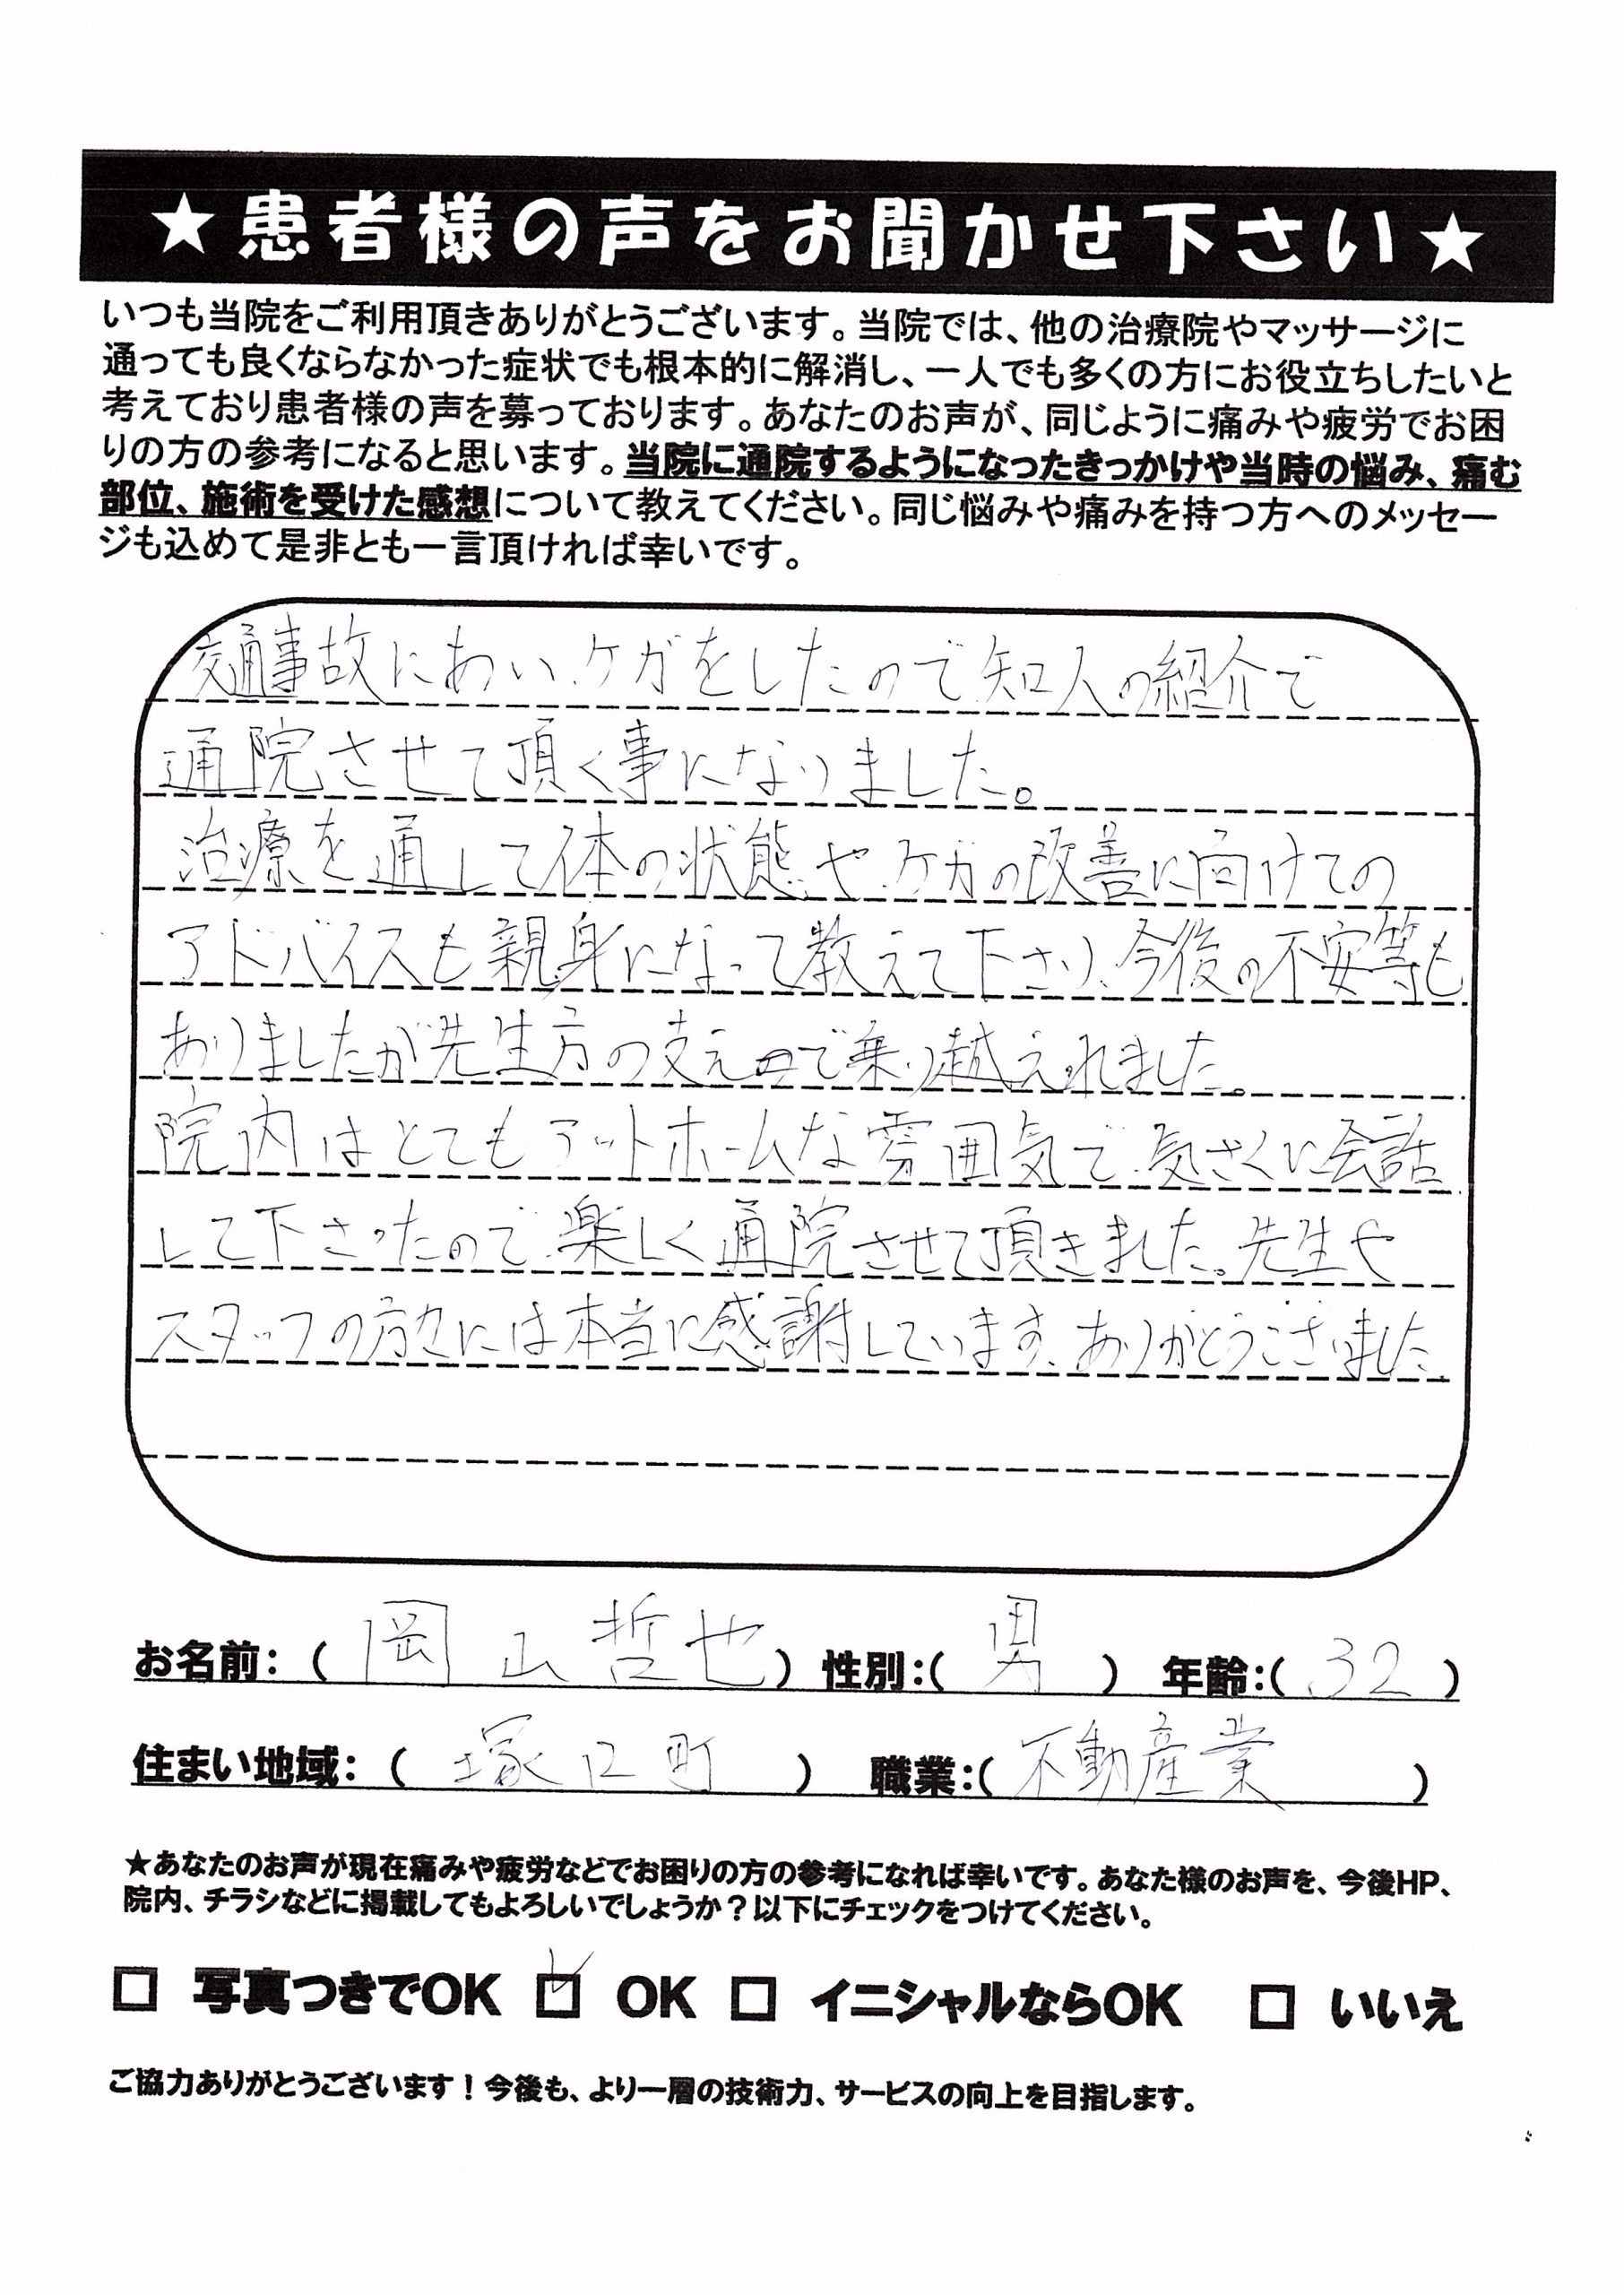 ★患者様の声をお聞かせ下さい★
いつも当院をご利用頂きありがとうございます。当院では、他の治療院やマッサージに
通っても良くならなかった症状でも根本的に解消し、一人でも多くの方にお役立ちしたいと
考えており患者様の声を募っております。あなたのお声が、同じように痛みや疲労でお困
りの方の参考になると思います。当院に通院するようになったきっかけや当時の悩み、痛む
部位、施術を受けた感想について教えてください。同じ悩みや痛みを持つ方へのメッセー
ジも込めて是非とも一言頂ければ幸いです。
交通事故にあい、ケガをしたので知人の紹介で
通院させて頂く事になりました。
治療を通して体の状態や、ケガの改善に向けての
アドバイスも親身になって教えて下さり、今後の不安等も
ありましたが先生方の支えので乗り越えれました。
院内はとてもアットホームな雰囲気で、気さくに会話
して下さったので、楽しく通院させて頂きました。先生や
スタッフの方々には本当に感謝しています。ありがとうございました。
お名前：（岡山哲也）性別：（男）年齢：（32）
住まい地域：（塚口町）職業：（不動産業）
★あなたのお声が現在痛みや疲労などでお困りの方の参考になれば幸いです。あなた様のお声を、今後HP、
院内、チラシなどに掲載してもよろしいでしょうか？以下にチェックをつけてください。
□ 写真つきでOK ☑ OK □ イニシャルならOK □ いいえ
ご協力ありがとうございます！今後も、より一層の技術力、サービスの向上を目指します。